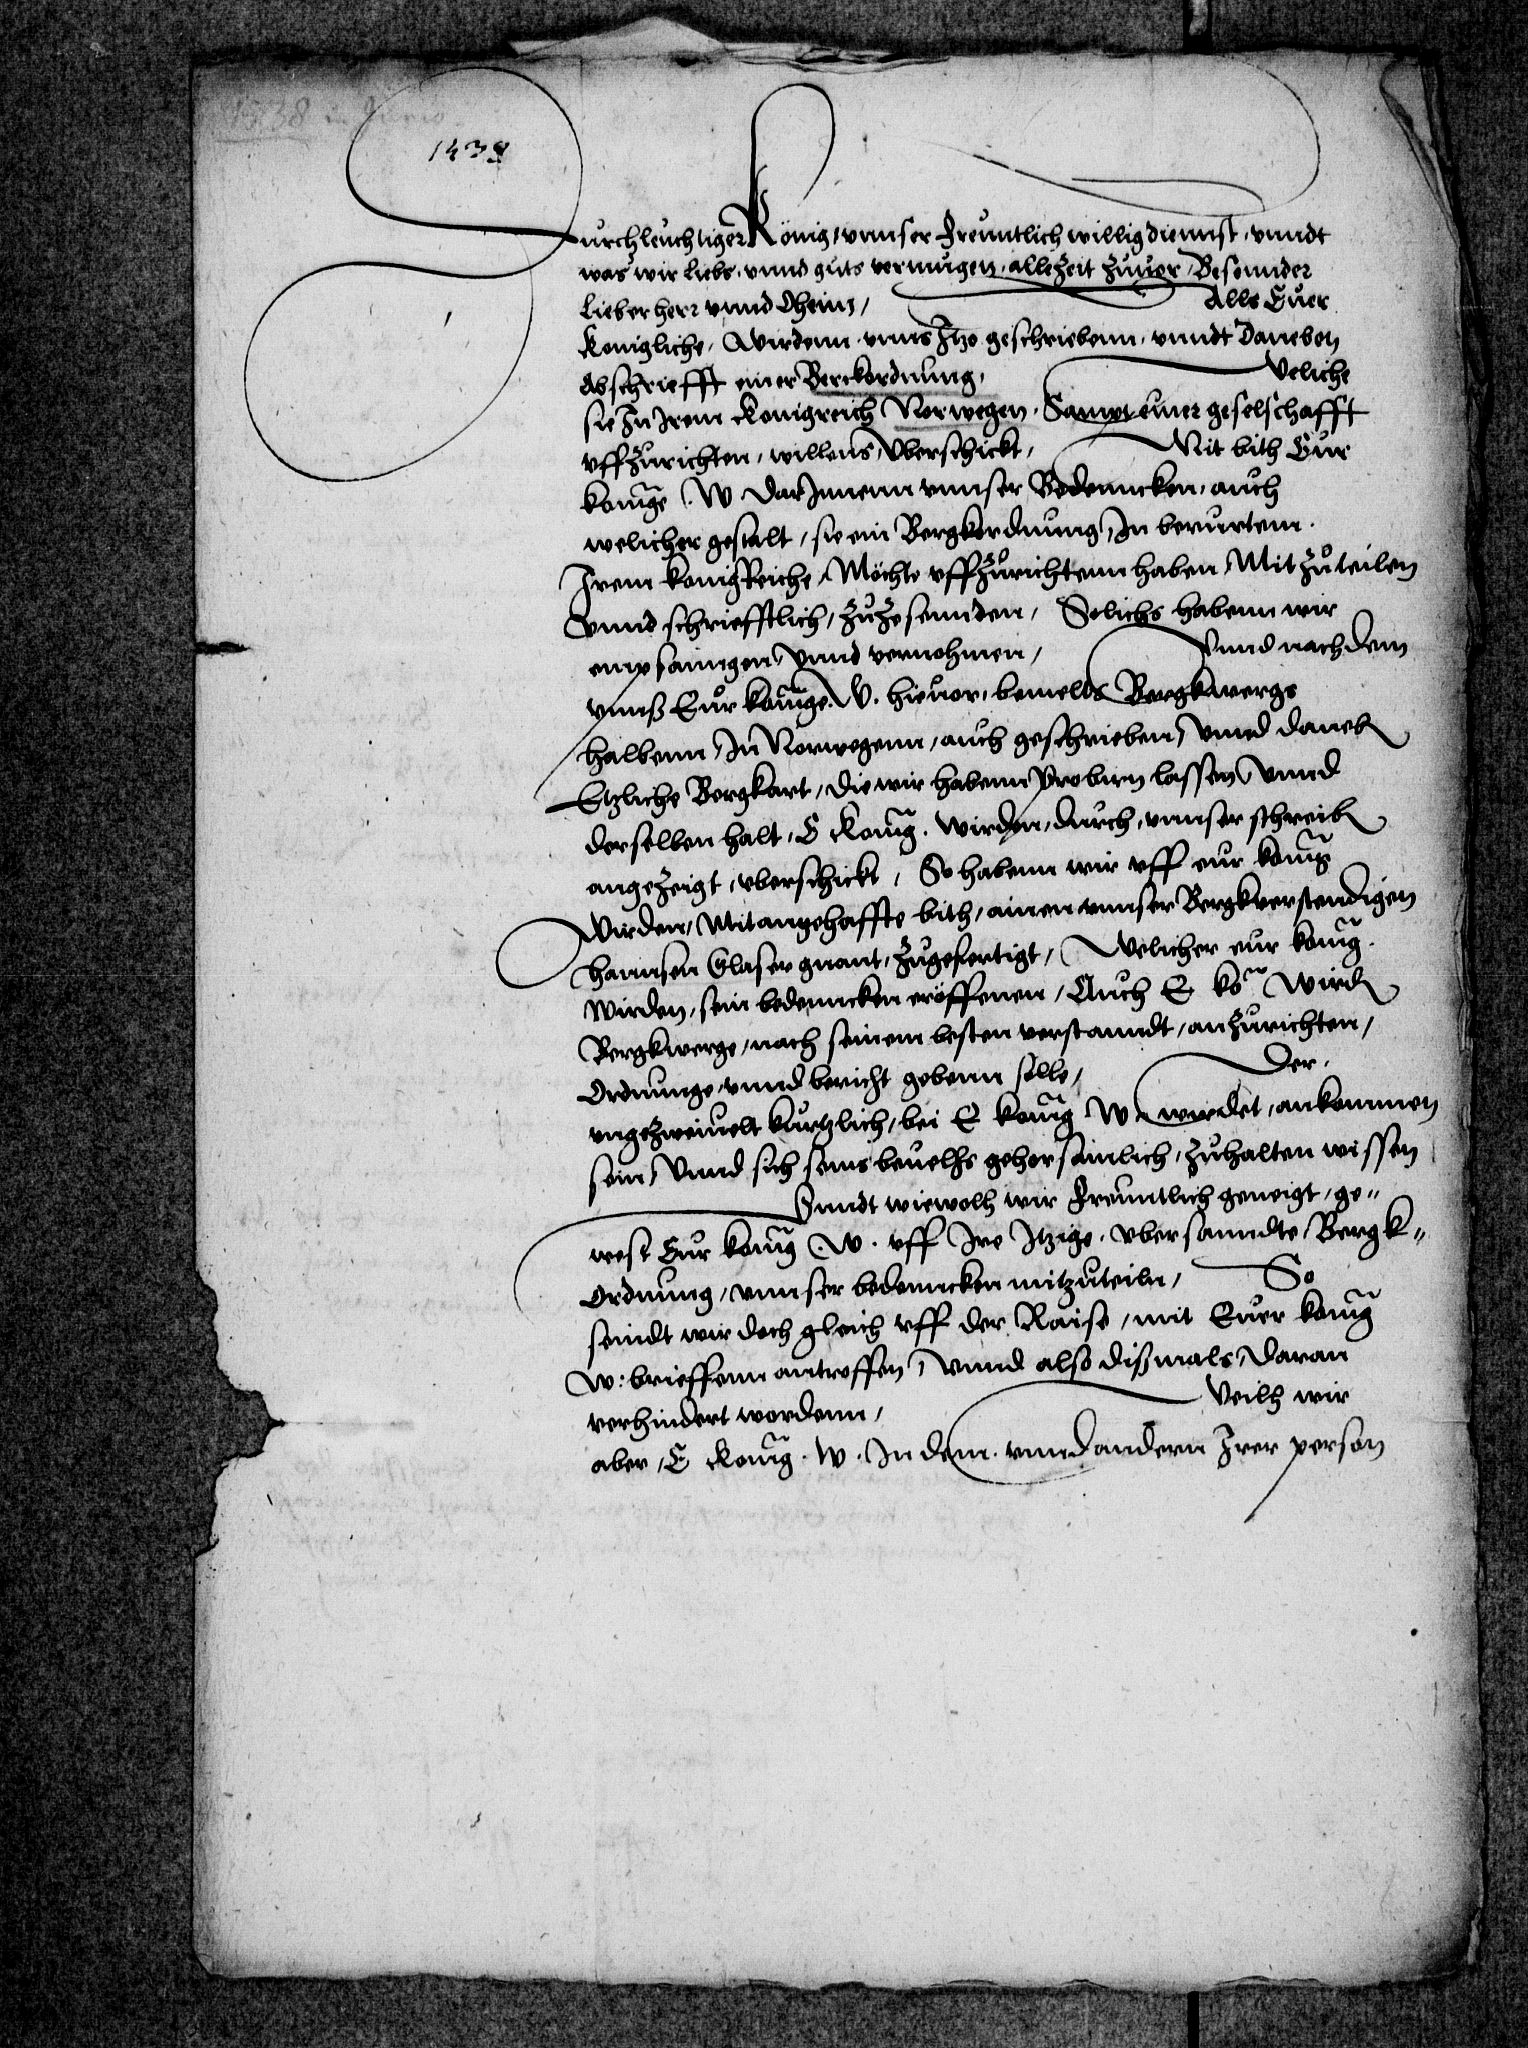 1538 in Junio
1538
Durchleuchtiger König, vnnser freuntlich willig diennst, vnndt
was wir liebs, vnnd guts vermugen, allezeit zuuor, Besonnder
Lieber herr vnnd Oheim, Alls Euer
Konigliche, Wirdenn, vnns Itzo geschriebenn, vnndt daneben
Abschriefft einer Berckordnung, Veliche
sie In Irem Konigreich Norwegen, Sampt einer geselschafft
vffZurichten, willens, Vberschickt, Mit bith Eur
konige. W. dar Innenn vnnser Bedenncken, auch
welicher gestalt, sie ein Bergkordnung, In berurtem
Irem konigReiche, Möchte vffZurichtenn haben, Mit Zuteilen
Vnnd schriefftlich, ZuZesennden, Solichs habenn wir
empfanngen, Vnnd vernohmen, Vnnd nach dem
vnnß Eur konige. W. hieuor, bemelds Bergkwergs
halbenn, In Norwegenn, auch geschrieben, vnnd daneb
Etzliche Bergkart, die wir habenn Probirn lassen, Vnnd
derselben halt, E Konig. Wirden, durch, vnnser schreib
angezeigt, vberschickt, So habenn wir vff eur konig
Wirden, Mit angehaffte bith, ainen vnnser Bergkverstendigen
hannsen Glaser gnant, Zugefertigt, Velicher eur konig.
Wirden, sein bedenncken eröffenen, Auch E ko Wird
Bergkwerge, nach seinem besten verstanndt, anZurichten,
Ordnunge, vnnd bericht gebenn solle, Der,
vngeZweiuelt kurtzlich, bei E konig W. wirdet, ankommen
sein, Vnnd sich seins beuelhs gehorsamlich, Zuhalten wissen
Vnndt wiewolh wir freuntlich geneigt, ge"
west Eur konig. W. vff Ire Itzige, vbersanndte Bergk"
Ordnung, vnnser bedenncken mitzuteiln, So
seindt wir doch gleich vff der Raise, mit Euer konig
W: brieffenn antroffen, Vnnd also dißmals, daran
verhindert wordenn, Veilh wir
aber, E Konig. W. In dem, vnnd andern Irer person